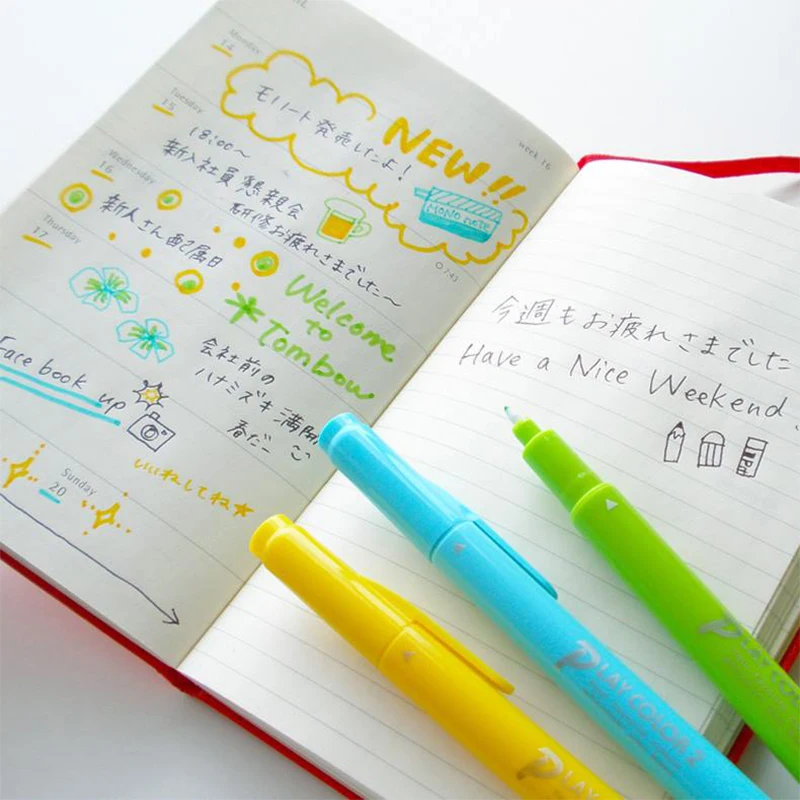 week 16
Monday
14
モノノート発売したよ!
NEW!!
MONO note
Tuesday
15
18:00〜
新入社員懇親会
研修お疲れさまでした〜
Wednesday
16
新人さん配属日
Welcome
to
Tombow
Thursday
17
会社前の
ハナミズキ満開
春だ
Face book up
いいねしてね★
Sunday
20
今週もお疲れさまでした
Have a Nice Weekend.
PLAY COLOR 2
PLAY
PLAY COLO